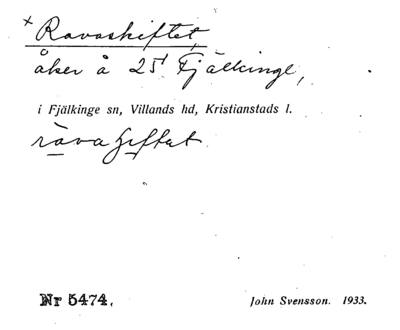 x Ravaskiftet,
åker å 25¹ Fjälkinge,
i Fjälkinge sn, Villands hd, Kristianstads l.
Nr 5474.
John Svensson. 1933.